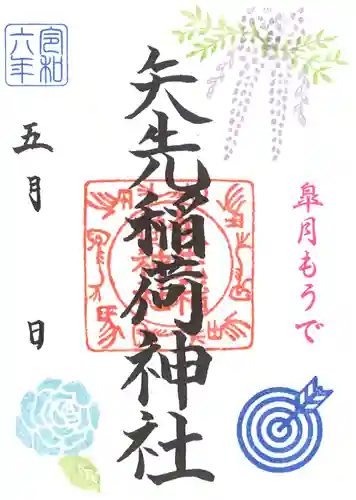 皐月もうで
矢先稲荷神社
令和
六年
五月 日